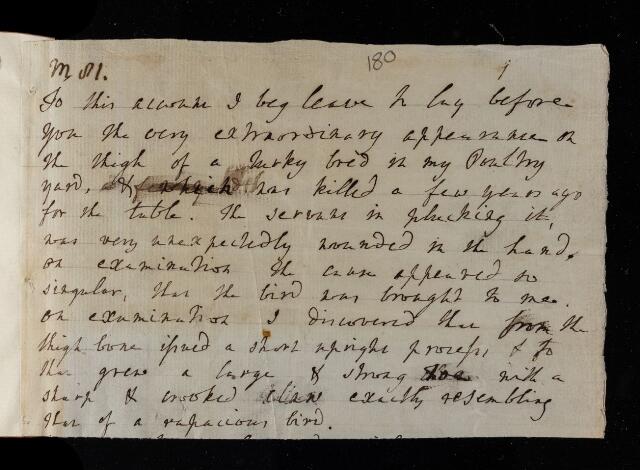 180
M 81. 9
To this account I beg leave to lay before
you the very extraordinary appearance on
the thigh of a turky bred in my Poultry
yard, & which was killed a few years ago
for the table. The servant in plucking it,
was very unexpectedly wounded in the hand.
on examination the cause appeared so
singular, that the bird was brought to me.
on examination I discovered that from the
thigh bone issued a short upright process, & to
that grew a large & strong toe with a
sharp & crooked claw exactly resembling
that of a rapacious bird.